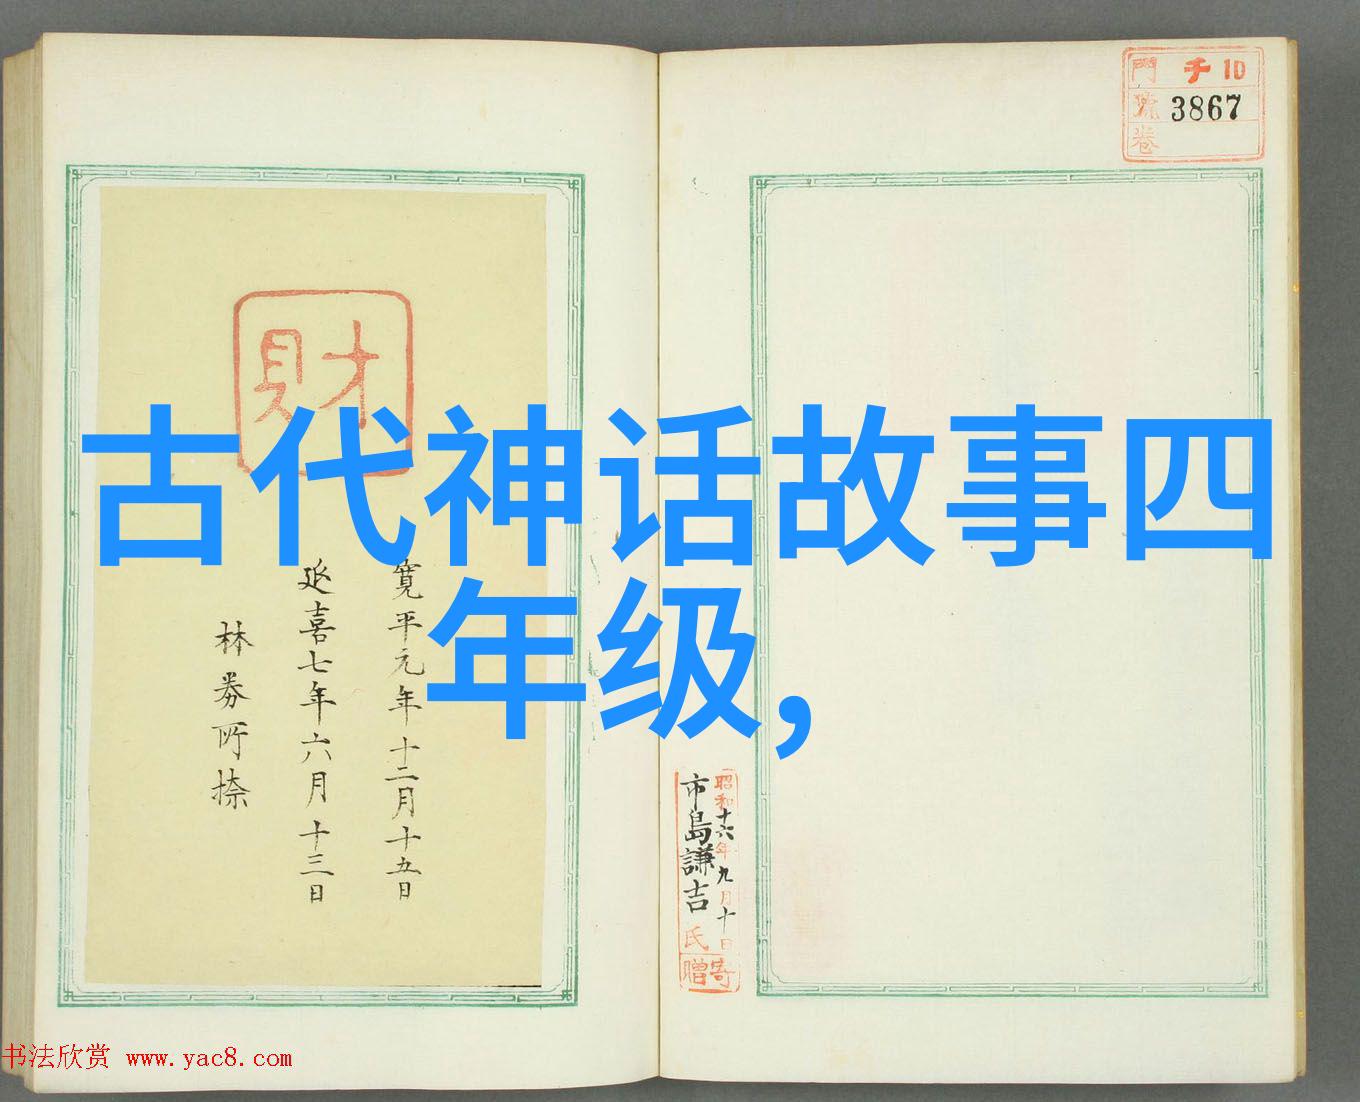 門 千 10
號 3867
卷
財
古代神话故事四
年级,
寛平元年十二月十五日
延喜七年六月十三日
林券所捺
昭和十六年九月十日
市島謙吉氏
寄贈
书法欣赏 www.yac8.com